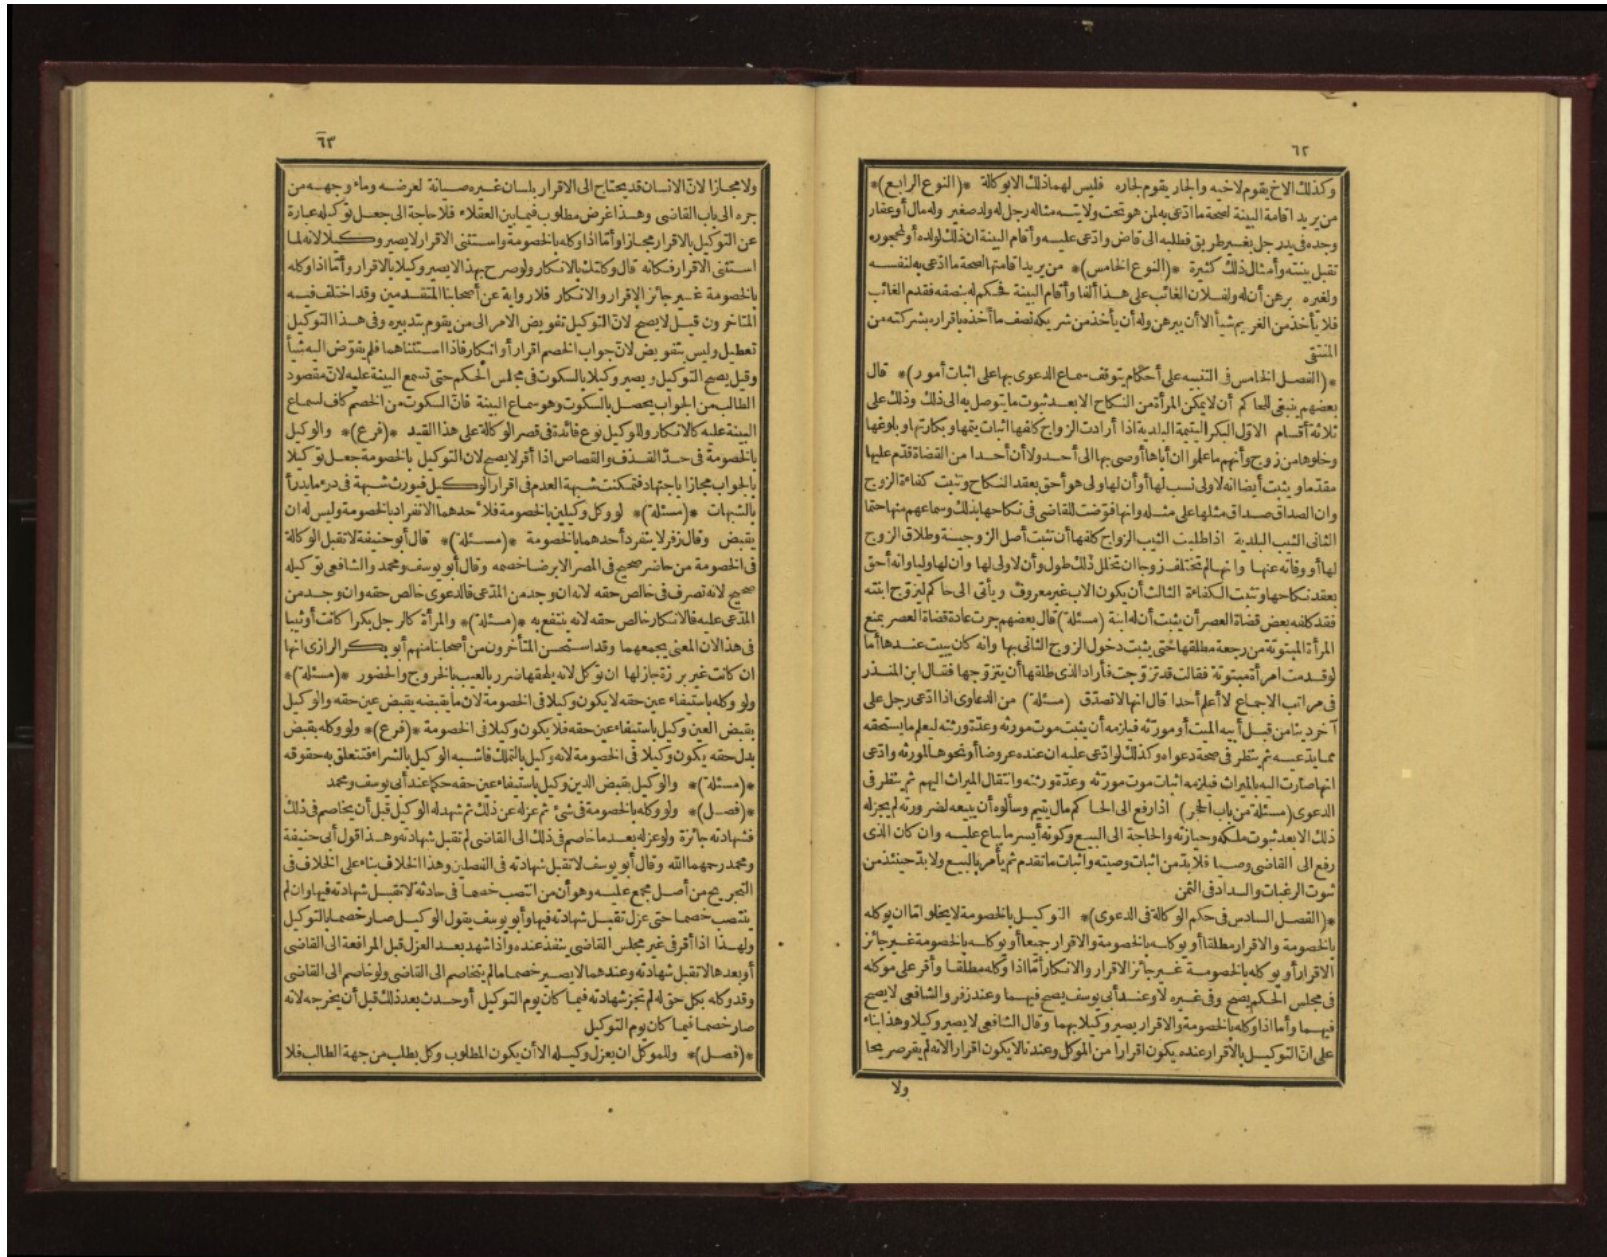 ٦٢
وكذلك الاخ يقوم لاخيه والجار يقوم لجاره فليس لهما ذلك الا بوكالة *(النوع الرابع)*
من يريد اقامة البينة لصحة ما ادعى به لمن هو تحت ولايته مثاله رجل له ولد صغير وله مال أو عقار
وجده فى يد رجل بغير طريق فطلبه الى قاض وادعى عليه وأقام البينة ان ذلك لولده أو لمحجوره
تقبل بينته وأمثال ذلك كثيرة *(النوع الخامس)* من يريد اقامتها لصحة ما ادعى به لنفسه
ولغيره برهن أن له ولفلان الغائب على هذا ألفا وأقام البينة فحكم له بنصفه فقدم الغائب
فلا يأخذ من الغريم شيأ الا أن يبرهن وله أن يأخذ من شريكه نصف ما أخذه باقراره بشركته من
المنتقى
*(الفصل الخامس فى التنبيه على أحكام يتوقف سماع الدعوى بها على اثبات أمور)* قال
بعضهم ينبغى للحاكم أن لا يمكن المرأة من النكاح الا بعد ثبوت ما يتوصل به الى ذلك وذلك على
ثلاثة أقسام الاوّل البكر اليتيمة البلدية اذا أرادت الزواج كلفها اثبات يتمها وبكارتها وبلوغها
وخلوها من زوج وأنهم ما علموا ان أباها أوصى بها الى أحد ولا أن أحدا من القضاة قدّم عليها
مقدّما ويثبت أيضا انه لا ولى نسب لها أو أن لها ولى هو أحق بعقد النكاح وتثبت كفاءة الزوج
وان الصداق صداق مثلها على مثله وانها فوّضت للقاضى فى نكاحها بذلك وسماعهم منها حتما
الثانى الثيب البلدية اذا طلبت الثيب الزواج كلفها أن تثبت أصل الزوجية وطلاق الزوج
لها أو وفاته عنها وانها لم تختلف زوجا ان تخلل ذلك طول وأن لا ولى لها وان لها وليا وانه أحق
بعقد نكاحها وتثبت الكفاءة الثالث أن يكون الاب غير معروف ويأتى الى حاكم ليزوج ابنته
فقد كلفه بعض قضاة العصر أن يثبت أن له ابنة (مسئلة) قال بعضهم جرت عادة قضاة العصر بمنع
المرأة المبتوتة من رجعة مطلقها حتى يثبت دخول الزوج الثانى بها وانه كان يبيت عندها أما
لو قدمت امرأة مبتوتة فقالت قد تزوّجت فأراد الذى طلقها أن يتزوّجها فقال ابن المنذر
فى مراتب الاجماع لا أعلم أحدا قال انها لا تصدّق (مسئلة) من الدعاوى اذا ادعى رجل على
آخر دينا من قبل أبيه الميت أو مورّثه فيلزمه أن يثبت موت مورثه وعدّة ورثته ليعلم ما يستحقه
مما يدّعيه ثم ينظر فى صحة دعواه وكذلك لو ادّعى عليه ان عنده عروضا أو نحوها لمورثه وادّعى
انها صارت اليه بالميراث فيلزمه اثبات موت مورّثه وعدّة ورثته وانتقال الميراث اليهم ثم ينظر فى
الدعوى (مسئلة من باب الحجر) اذا رفع الى الحاكم مال يتيم وسألوه أن يبيعه لضرورته لم يجز له
ذلك الا بعد ثبوت ملكه وحيازته والحاجة الى البيع وكونه أيسر ما يباع عليه وان كان الذى
رفع الى القاضى وصيا فلا بدّ من اثبات وصيته واثبات ما تقدم ثم يأمر بالبيع ولا بدّ حينئذ من
ثبوت الرغبات والسداد فى الثمن
*(الفصل السادس فى حكم الوكالة فى الدعوى)* التوكيل بالخصومة لا يخلو امّا ان يوكله
بالخصومة والاقرار مطلقا أو يوكله بالخصومة والاقرار جميعا أو يوكله بالخصومة غير جائز
الاقرار أو يوكله بالخصومة غير جائز الاقرار والانكار أمّا اذا وكله مطلقا وأقر على موكله
فى مجلس الحكم يصح وفى غيره لا وعند أبى يوسف يصح فيهما وعند زفر والشافعى لا يصح
فيهما وأما اذا وكله بالخصومة والاقرار يصير وكيلا بهما وقال الشافعى لا يصير وكيلا وهذا بناء
على انّ التوكيل بالاقرار عنده يكون اقرارا من الموكل وعندنا لا يكون اقرارا لانه لم يقر صريحا
ولا
٦٣
ولا مجازا لانّ الانسان قد يحتاج الى الاقرار بلسان غيره صيانة لعرضه وماء وجهه من
جره الى باب القاضى وهذا غرض مطلوب فيما بين العقلاء فلا حاجة الى جعل توكيله عبارة
عن التوكيل بالاقرار مجازا وأمّا اذا وكله بالخصومة واستثنى الاقرار لا يصير وكيلا لانه لما
استثنى الاقرار فكانه قال وكلتك بالانكار ولو صرح بهذا لا يصير وكيلا بالاقرار وأمّا اذا وكله
بالخصومة غير جائز الاقرار والانكار فلا رواية عن أصحابنا المتقدمين وقد اختلف فيه
المتاخرون قيل لا يصح لانّ التوكيل تفويض الامر الى من يقوم بتدبيره وفى هذا التوكيل
تعطيل وليس بتفويض لانّ جواب الخصم اقرار أو انكار فاذا استثناهما فلم يفوّض اليه شيأ
وقيل يصح التوكيل ويصير وكيلا بالسكوت فى مجلس الحكم حتى تسمع البينة عليه لانّ مقصود
الطالب من الجواب يحصل بالسكوت وهو سماع البينة فانّ السكوت من الخصم كاف لسماع
البينة عليه كالانكار وللوكيل نوع فائدة فى قصر الوكالة على هذا القيد *(فرع)* والوكيل
بالخصومة فى حدّ القذف والقصاص اذا أقر لا يصح لان التوكيل بالخصومة جعل توكيلا
بالجواب مجازا باجتهاد فتمكنت شبهة العدم فى اقرار الوكيل فيورث شبهة فى درء ما يدرأ
بالشبهات *(مسئلة)* لو وكل وكيلين بالخصومة فلاحدهما الانفراد بالخصومة وليس له ان
يقبض وقال زفر لا ينفرد أحدهما بالخصومة *(مسئلة)* قال أبو حنيفة لا تقبل الوكالة
فى الخصومة من حاضر صحيح فى المصر الا برضا خصمه وقال أبو يوسف ومحمد والشافعى توكيله
صحيح لانه تصرف فى خالص حقه لانه ان وجد من المدّعى فالدعوى خالص حقه وان وجد من
المدّعى عليه فالانكار خالص حقه لانه ينتفع به *(مسئلة)* والمرأة كالرجل بكرا كانت أو ثيبا
فى هذا لان المعنى يجمعهما وقد استحسن المتأخرون من أصحابنا منهم أبو بكر الرازى انها
ان كانت غير برزة جاز لها ان توكل لانه يلحقها ضرر بالعيب بالخروج والحضور *(مسئلة)*
ولو وكله باستيفاء عين حقه لا يكون وكيلا فى الخصومة لانّ ما يقبضه يقبض عين حقه والوكيل
بقبض العين وكيل باستيفاء عين حقه فلا يكون وكيلا فى الخصومة *(فرع)* ولو وكله بقبض
بدل حقه يكون وكيلا فى الخصومة لانه وكيل بالتملك فاشبه الوكيل بالشراء فتتعلق به حقوقه
*(مسئلة)* والوكيل بقبض الدين وكيل باستيفاء عين حقه حكما عند أبى يوسف ومحمد
*(فصل)* ولو وكله بالخصومة فى شئ ثم عزله عن ذلك ثم شهد له الوكيل قبل أن يخاصم فى ذلك
فشهادته جائزة ولو عزله بعد ما خاصم فى ذلك الى القاضى لم تقبل شهادته وهذا قول أبى حنيفة
ومحمد رحمهما الله وقال أبو يوسف لا تقبل شهادته فى الفصلين وهذا الخلاف بناء على الخلاف فى
التجريح من أصل مجمع عليه وهو أن من انتصب خصما فى حادثة لا تقبل شهادته فيها وان لم
ينتصب خصما حتى عزل تقبل شهادته فيها وأبو يوسف يقول الوكيل صار خصما بالتوكيل
ولهذا اذا أقر فى غير مجلس القاضى ينفذ عنده واذا شهد بعد العزل قبل المرافعة الى القاضى
أو بعدها لا تقبل شهادته وعندهما لا يصير خصما ما لم يتخاصم الى القاضى ولو خاصم الى القاضى
وقد وكله بكل حق له لم تجز شهادته فيما كان يوم التوكيل أو حدث بعد ذلك قبل أن يخرجه لانه
صار خصما فيما كان يوم التوكيل
*(فصل)* وللموكل ان يعزل وكيله الا أن يكون المطلوب وكل بطلب من جهة الطالب فلا